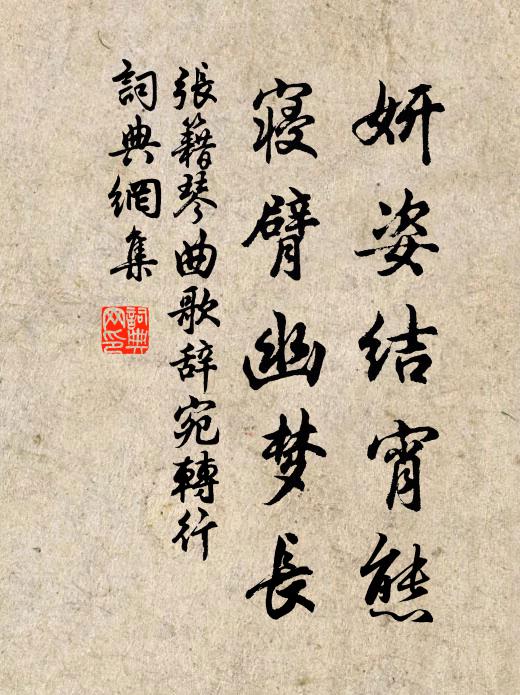 妍姿結宵態
寢臂幽梦長
張籍琴曲歌辞宛轉行
詞典網集
詞典网印